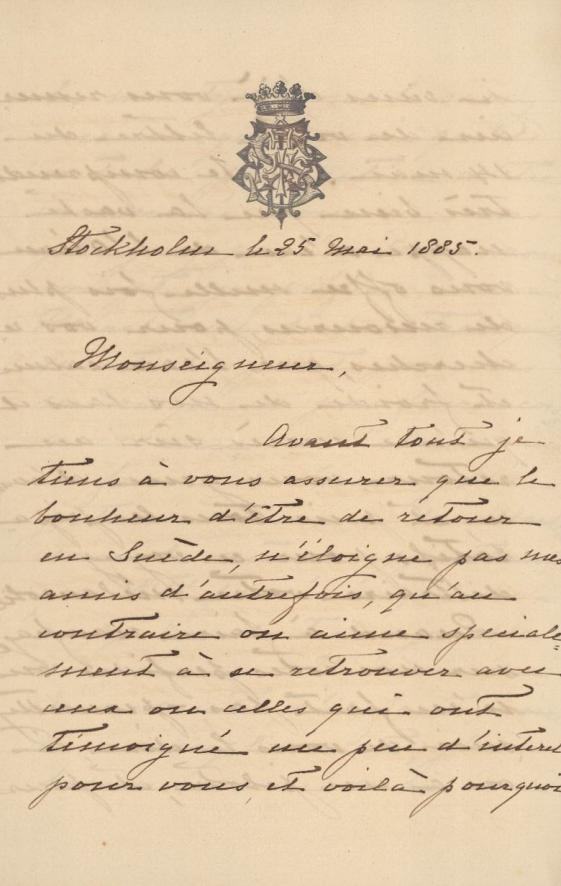 Stockholm le 25 Mai 1885.
Monseigneur,
Avant tout je
tiens à vous assurer que le
bonheur d'être de retour
en Suède, n'éloigne pas mes
amis d'autrefois, qu'au
contraire on aime speciale=
ment à se retrouver avec
ceux ou celles qui ont
témoigné un peu d'interet
pour vous, et voilà pourquoi